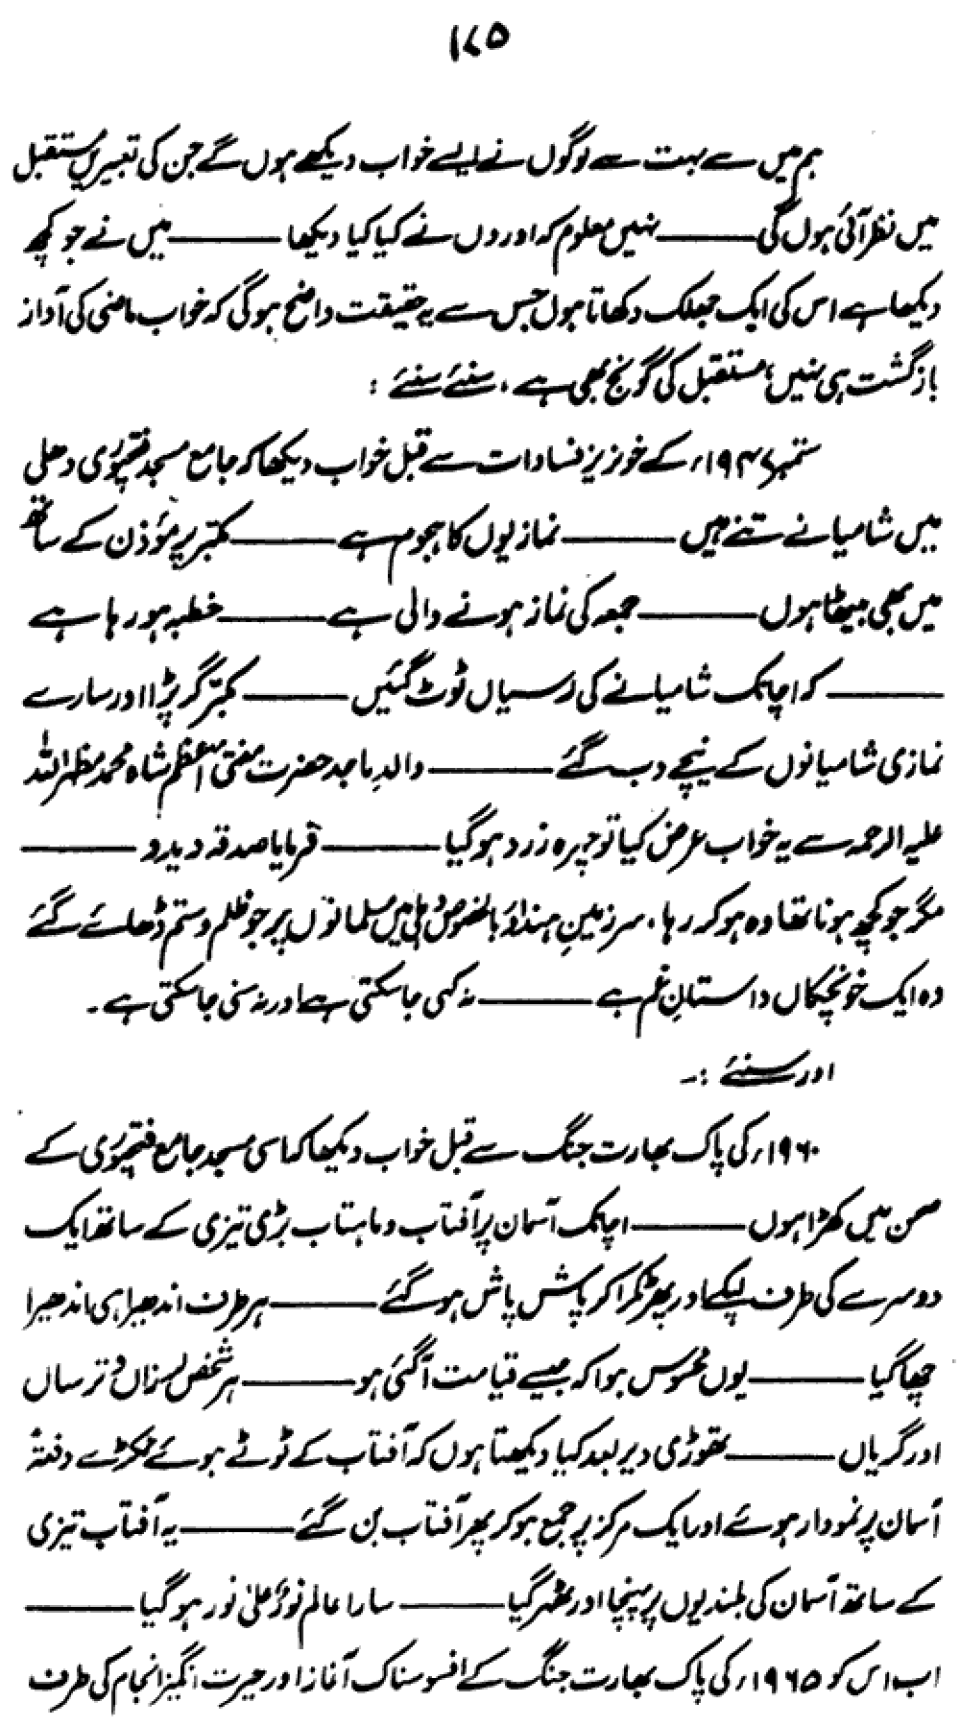 ۱۷۵
ہم میں سے بہت سے لوگوں نے ایسے خواب دیکھے ہوں گے جن کی تعبیریں مستقبل
میں نظر آئی ہوں گی ——— نہیں معلوم کہ اوروں نے کیا کیا دیکھا ——— میں نے جو کچھ
دیکھا ہے اس کی ایک جھلک دکھاتا ہوں جس سے یہ حقیقت واضح ہو گی کہ خواب ماضی کی آواز
بازگشت ہی نہیں، مستقبل کی گونج بھی ہے، سنئے سنئے :
ستمبر ۱۹۴۷ء کے خونریز فسادات سے قبل خواب دیکھا کہ جامع مسجد فتحپوری دھلی
میں شامیانے تنے ہیں ——— نمازیوں کا ہجوم ہے ——— مکبّر پر مؤذن کے ساتھ
میں بھی بیٹھا ہوں ——— جمعہ کی نماز ہونے والی ہے ——— خطبہ ہو رہا ہے
——— کہ اچانک شامیانے کی رسیاں ٹوٹ گئیں ——— مکبّر گر پڑا اور سارے
نمازی شامیانوں کے نیچے دب گئے ——— والدِ ماجد حضرت مفتی اعظم شاہ محمد مظہر اللہ
علیہ الرحمہ سے یہ خواب عرض کیا تو چہرہ زرد ہو گیا ——— فرمایا صدقہ دیدو ———
مگر جو کچھ ہونا تھا وہ ہو کر رہا، سرزمینِ ہند اور بالخصوص دہلی میں مسلمانوں پر جو ظلم و ستم ڈھائے گئے
وہ ایک خونچکاں داستانِ غم ہے ——— نہ کہی جا سکتی ہے اور نہ سنی جا سکتی ہے۔
اور سنئے :۔
۱۹۶۰ء کی پاک بھارت جنگ سے قبل خواب دیکھا کہ اسی مسجد جامع فتحپوری کے
صحن میں کھڑا ہوں ——— اچانک آسمان پر آفتاب و ماہتاب بڑی تیزی کے ساتھ ایک
دوسرے کی طرف لپکے اور پھر ٹکرا کر پاش پاش ہو گئے ——— ہر طرف اندھیرا ہی اندھیرا
چھا گیا ——— یوں محسوس ہوا کہ جیسے قیامت آگئی ہو ——— ہر شخص لرزاں و ترساں
اور گریاں ——— تھوڑی دیر بعد کیا دیکھتا ہوں کہ آفتاب کے ٹوٹے ہوئے ٹکڑے دفعتہً
آسمان پر نمودار ہوئے اور ایک مرکز پر جمع ہو کر پھر آفتاب بن گئے ——— یہ آفتاب تیزی
کے ساتھ آسمان کی بلندیوں پر پہنچا اور ٹھہر گیا ——— سارا عالم نورٌ علیٰ نور ہو گیا ———
اب اس کو ۱۹۶۵ء کی پاک بھارت جنگ کے افسوسناک آغاز اور حیرت انگیز انجام کی طرف